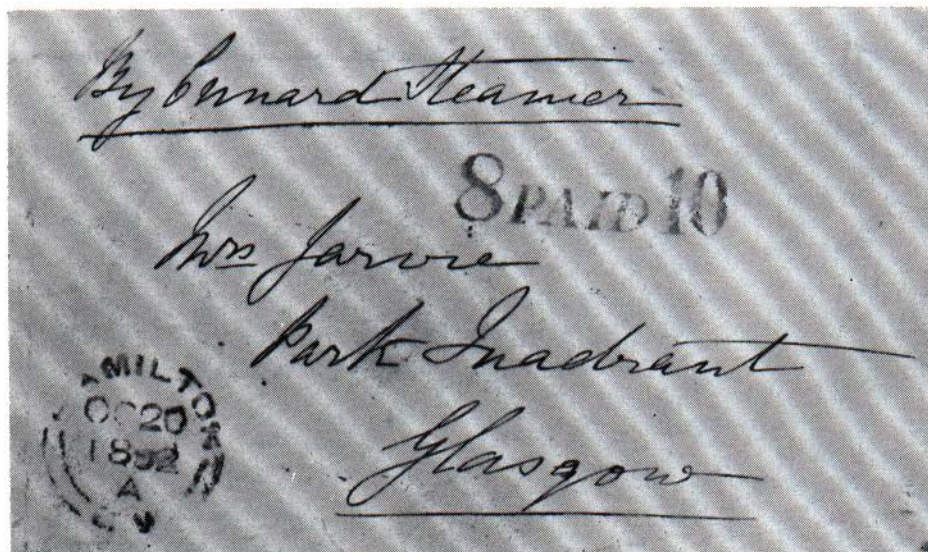 By Cunard Steamer
8 PAID 10
Mrs Jarvie
Park Quadrant
Glasgow
HAMILTON
OC 20
1892
A
C. W